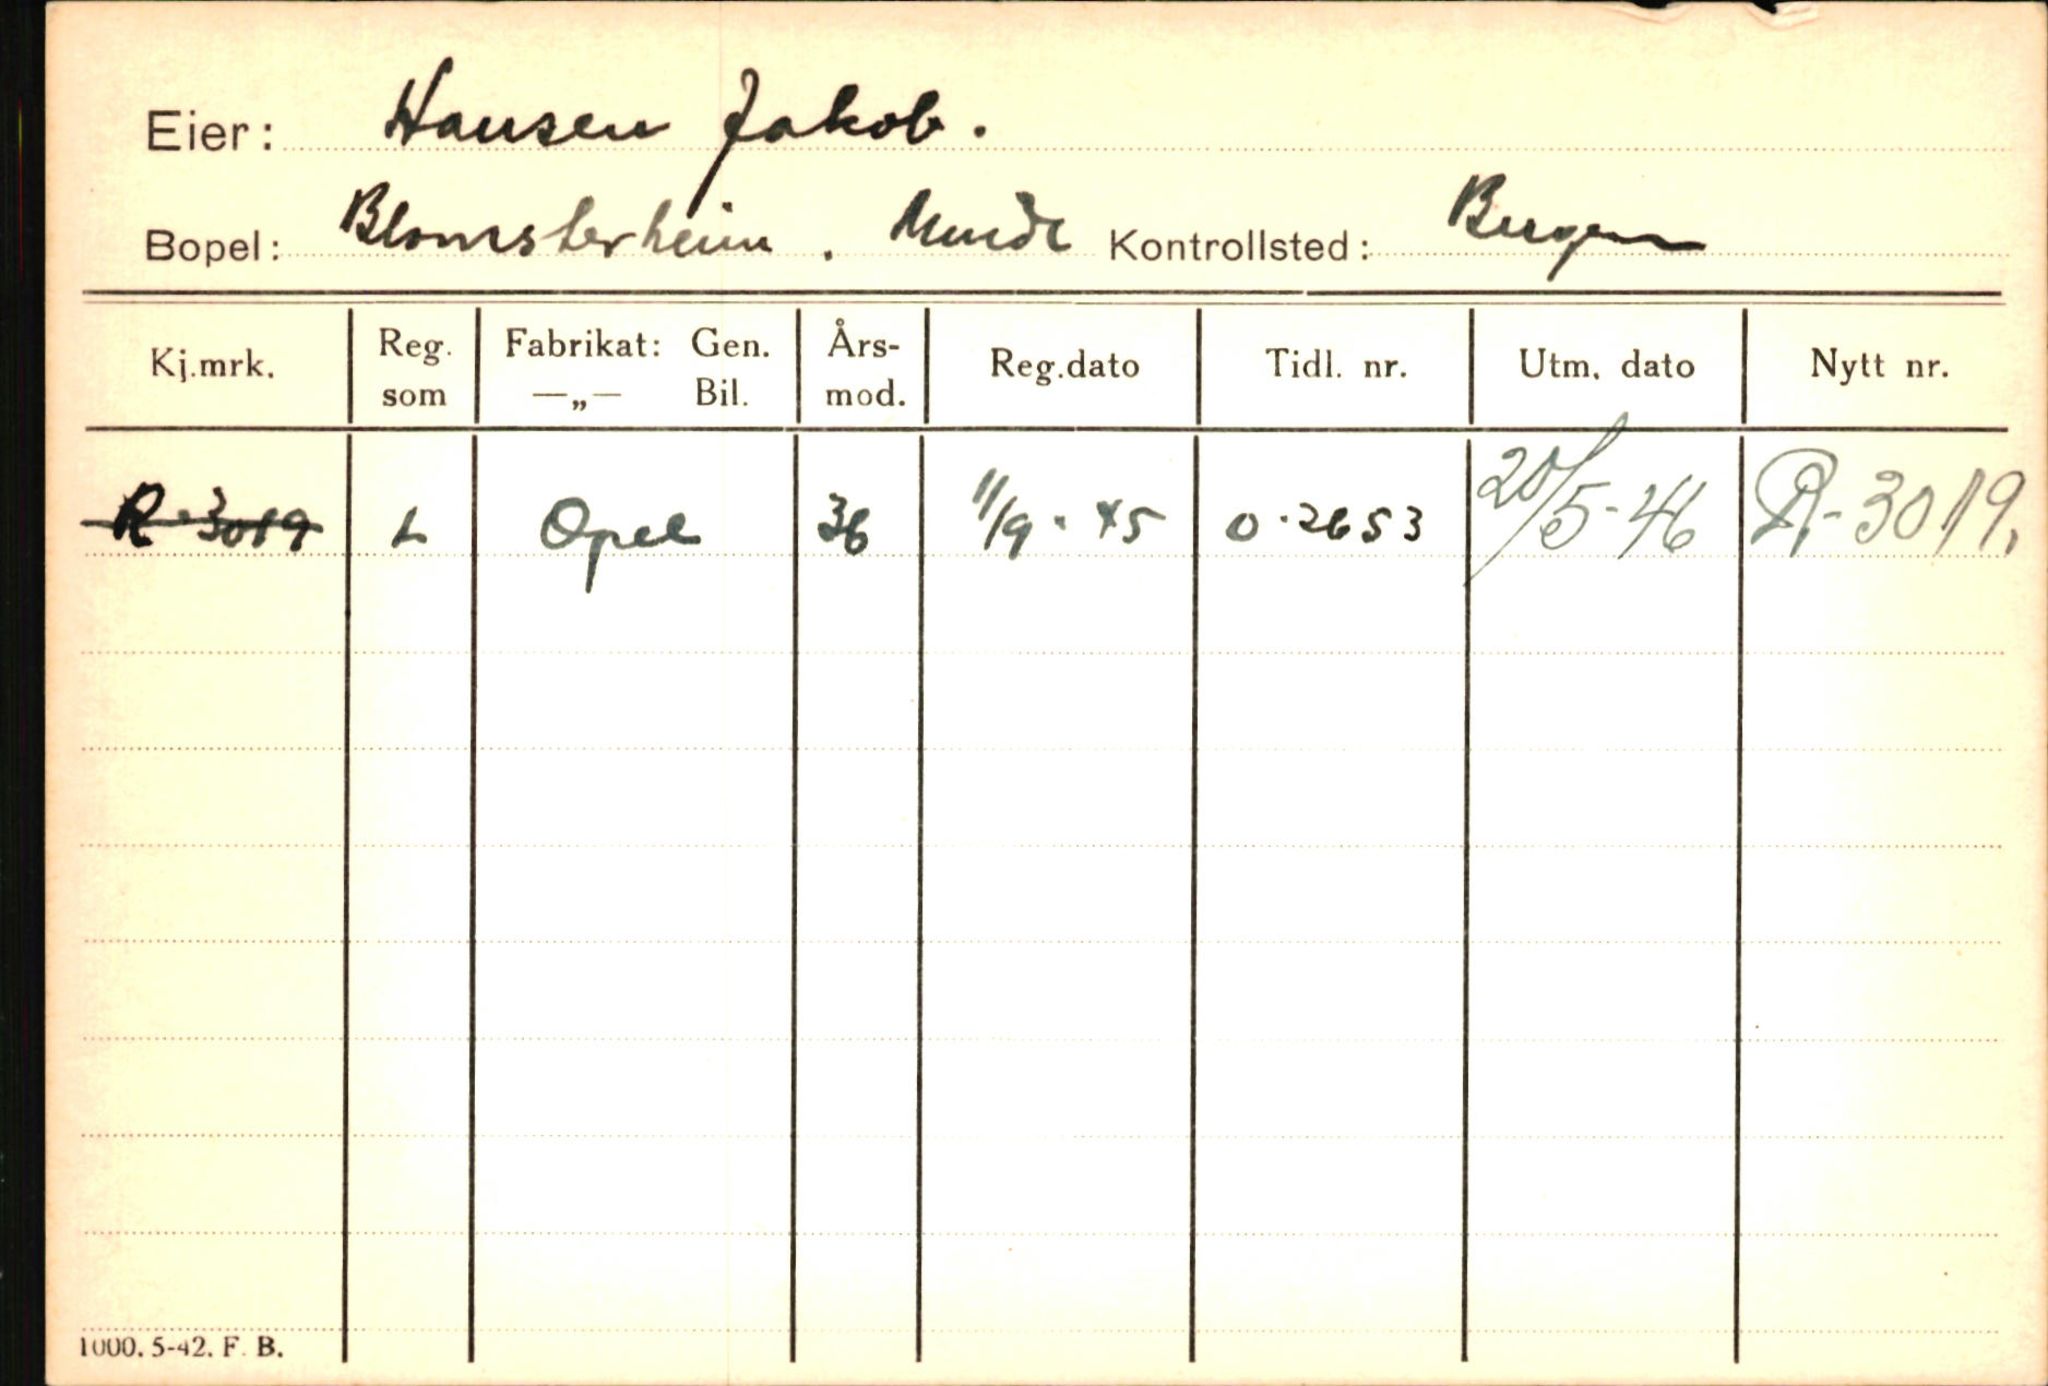 Eier: Hansen Jakob.
Bopel: Blomsterheim. Minde Kontrollsted: Bergen
Kj.mrk. Reg. som Fabrikat: Gen. —„— Bil. Års- mod. Reg.dato Tidl. nr. Utm. dato Nytt nr.
R-3019 L Opel 36 11/9-45 O-2653 20/5-46 R-3019.
1000. 5-42. F. B.